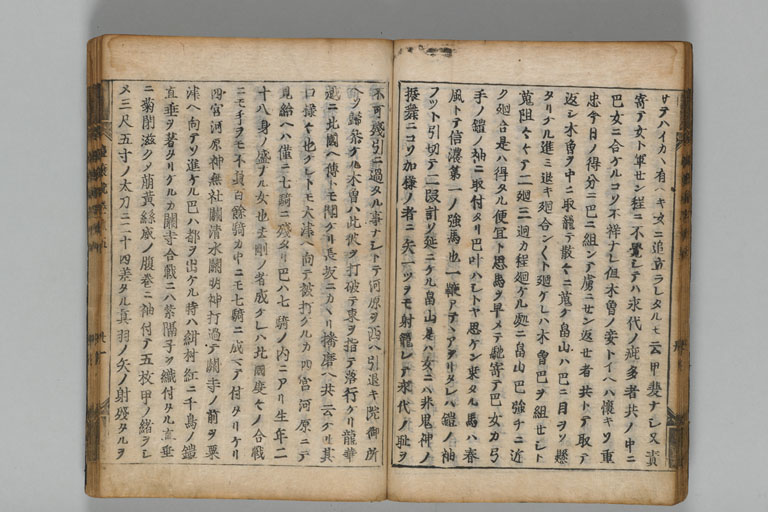 サテハイカヽ有ヘキ女ニ追立ラレタルモ云甲斐ナシ又責
寄テ女ト軍セン程ニ不覺シテハ永代ノ疵多者共ノ中ニ
巴女ニ合ケルコソ不祥ナレ但木曽ノ妾トイヘハ懐キソ重
忠今日ノ得分ニ巴ニ組ンテ虜ニセン返セ者共トテ取テ
返シ木曽ヲ中ニ取籠テ散々ニ蒐ク畠山ハ巴ニ目ヲソ懸
タリケル進ミ退キ廻合ンくト廻ケレハ木曽巴ヲ組セシト
蒐阻々々テ二廻三廻カ程廻ケル處ニ畠山巴強チニ近
ク廻合是ハ得タル便宜ト思馬ヲ早メテ馳寄テ巴女カ弓
手ノ鎧ノ袖ニ取付タリ巴叶ハシトヤ思ケン乗タル馬ハ春
風トテ信濃第一ノ強馬也一鞭アテヽアヲリタレハ鎧ノ袖
フツト引切テ二段計ソ延ニケル畠山是ハ女ニハ非鬼神ノ
振舞ニコソ加様ノ者ニ矢一ツヲモ射籠レテ永代ノ耻ヲ
不可殘引ニ過タル事ナシトテ河原ヲ西ヘ引退キ院御所
ヘソ歸参ケル木曽ハ此彼ヲ打破テ東ヲ指テ落行ケリ龍華
越ニ北國ヘ傳トモ聞ケリ長坂ニカヽリ播磨ヘ共云ケリ其
口様々也ケレトモ大津ヘ向テ被打ケルカ四宮河原ニテ
見給ヘハ僅ニ七騎ニ殘タリ巴ハ七騎ノ内ニアリ生年二
十八身ノ盛ナル女也去剛ノ者成ケレハ北國度々ノ合戦
ニモ手ヲモ不負百餘騎カ中ニモ七騎ニ成マテ付タリケリ
四宮河原神無社關清水關明神打過テ關寺ノ前ヲ粟
津ヘ向テソ進ケル巴ハ都ヲ出ケル時ハ紺村紅ニ千鳥ノ鎧
直垂ヲ著タリケルカ關寺合戦ニハ紫隔子ヲ織付タル直垂
ニ菊閉滋クシ萠黄絲威ノ腹巻ニ袖付テ五枚甲ノ緒ヲシ
メ三尺五寸ノ太刀ニ二十四差タル真羽ノ矢ノ射殘タルヲ